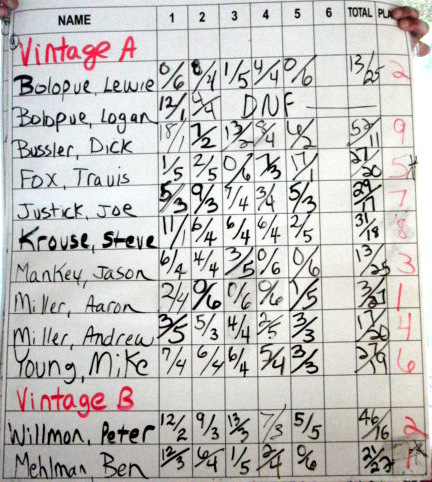 NAME 1 2 3 4 5 6 TOTAL
Vintage A
Bolopue, Lewie 0/6 8/4 1/5 4/4 0/6 13/25 2
Bolopue, Logan 12/1 DNF
Bussler, Dick 18/1 7/2 13/2 8/4 6/2 52/11 9
Fox, Travis 1/5 2/5 0/6 7/3 17/1 27/20 5
Justick, Joe 5/3 9/3 7/4 3/4 5/3 29/17 7
Krouse, Steve 11/1 6/4 6/4 6/4 2/5 31/18 8
Mankey, Jason 6/4 4/4 3/5 0/6 0/6 13/25 3
Miller, Aaron 2/4 0/6 0/6 0/6 1/5 3/27 1
Miller, Andrew 3/5 5/3 4/4 2/5 3/3 17/20 4
Young, Mike 7/4 6/4 6/4 5/4 3/3 27/19 6
Vintage B
Willmon, Peter 12/2 9/3 13/3 7/3 5/5 46/16 2
Mehlman Ben 12/3 6/4 1/5 2/4 0/6 21/22 1